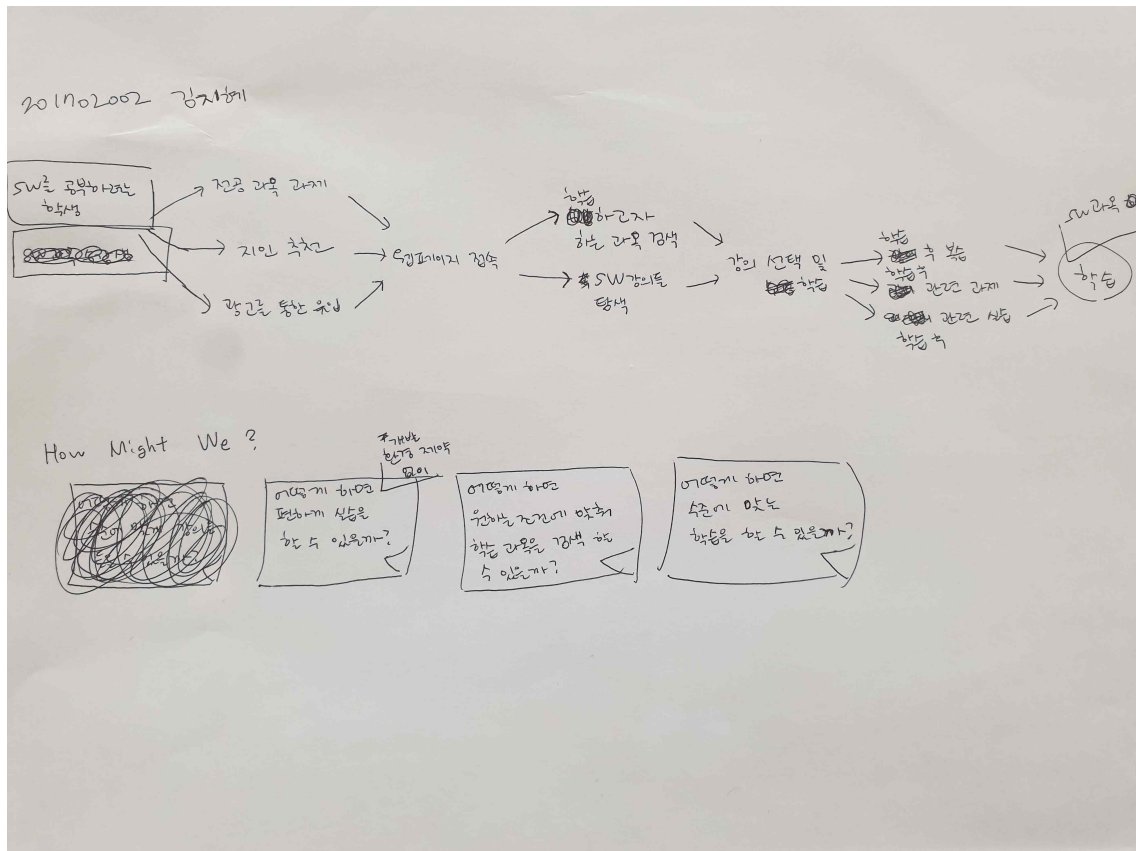 201702002 김지혜
SW를 공부하려는
학생
전공 과목 과제
지인 추천
광고를 통한 유입
웹페이지 접속
학습
하고자
하는 과목 검색
SW강의들
탐색
강의 선택 및
학습
학습
후 복습
학습 후
관련 과제
관련 실습
학습 후
SW과목
학습
How Might We ?
*개발
환경 제약
없이
어떻게 하면
편하게 실습을
할 수 있을까?
어떻게 하면
원하는 조건에 맞춰
학습 과목을 검색 할
수 있을까?
어떻게 하면
수준에 맞는
학습을 할 수 있을까?